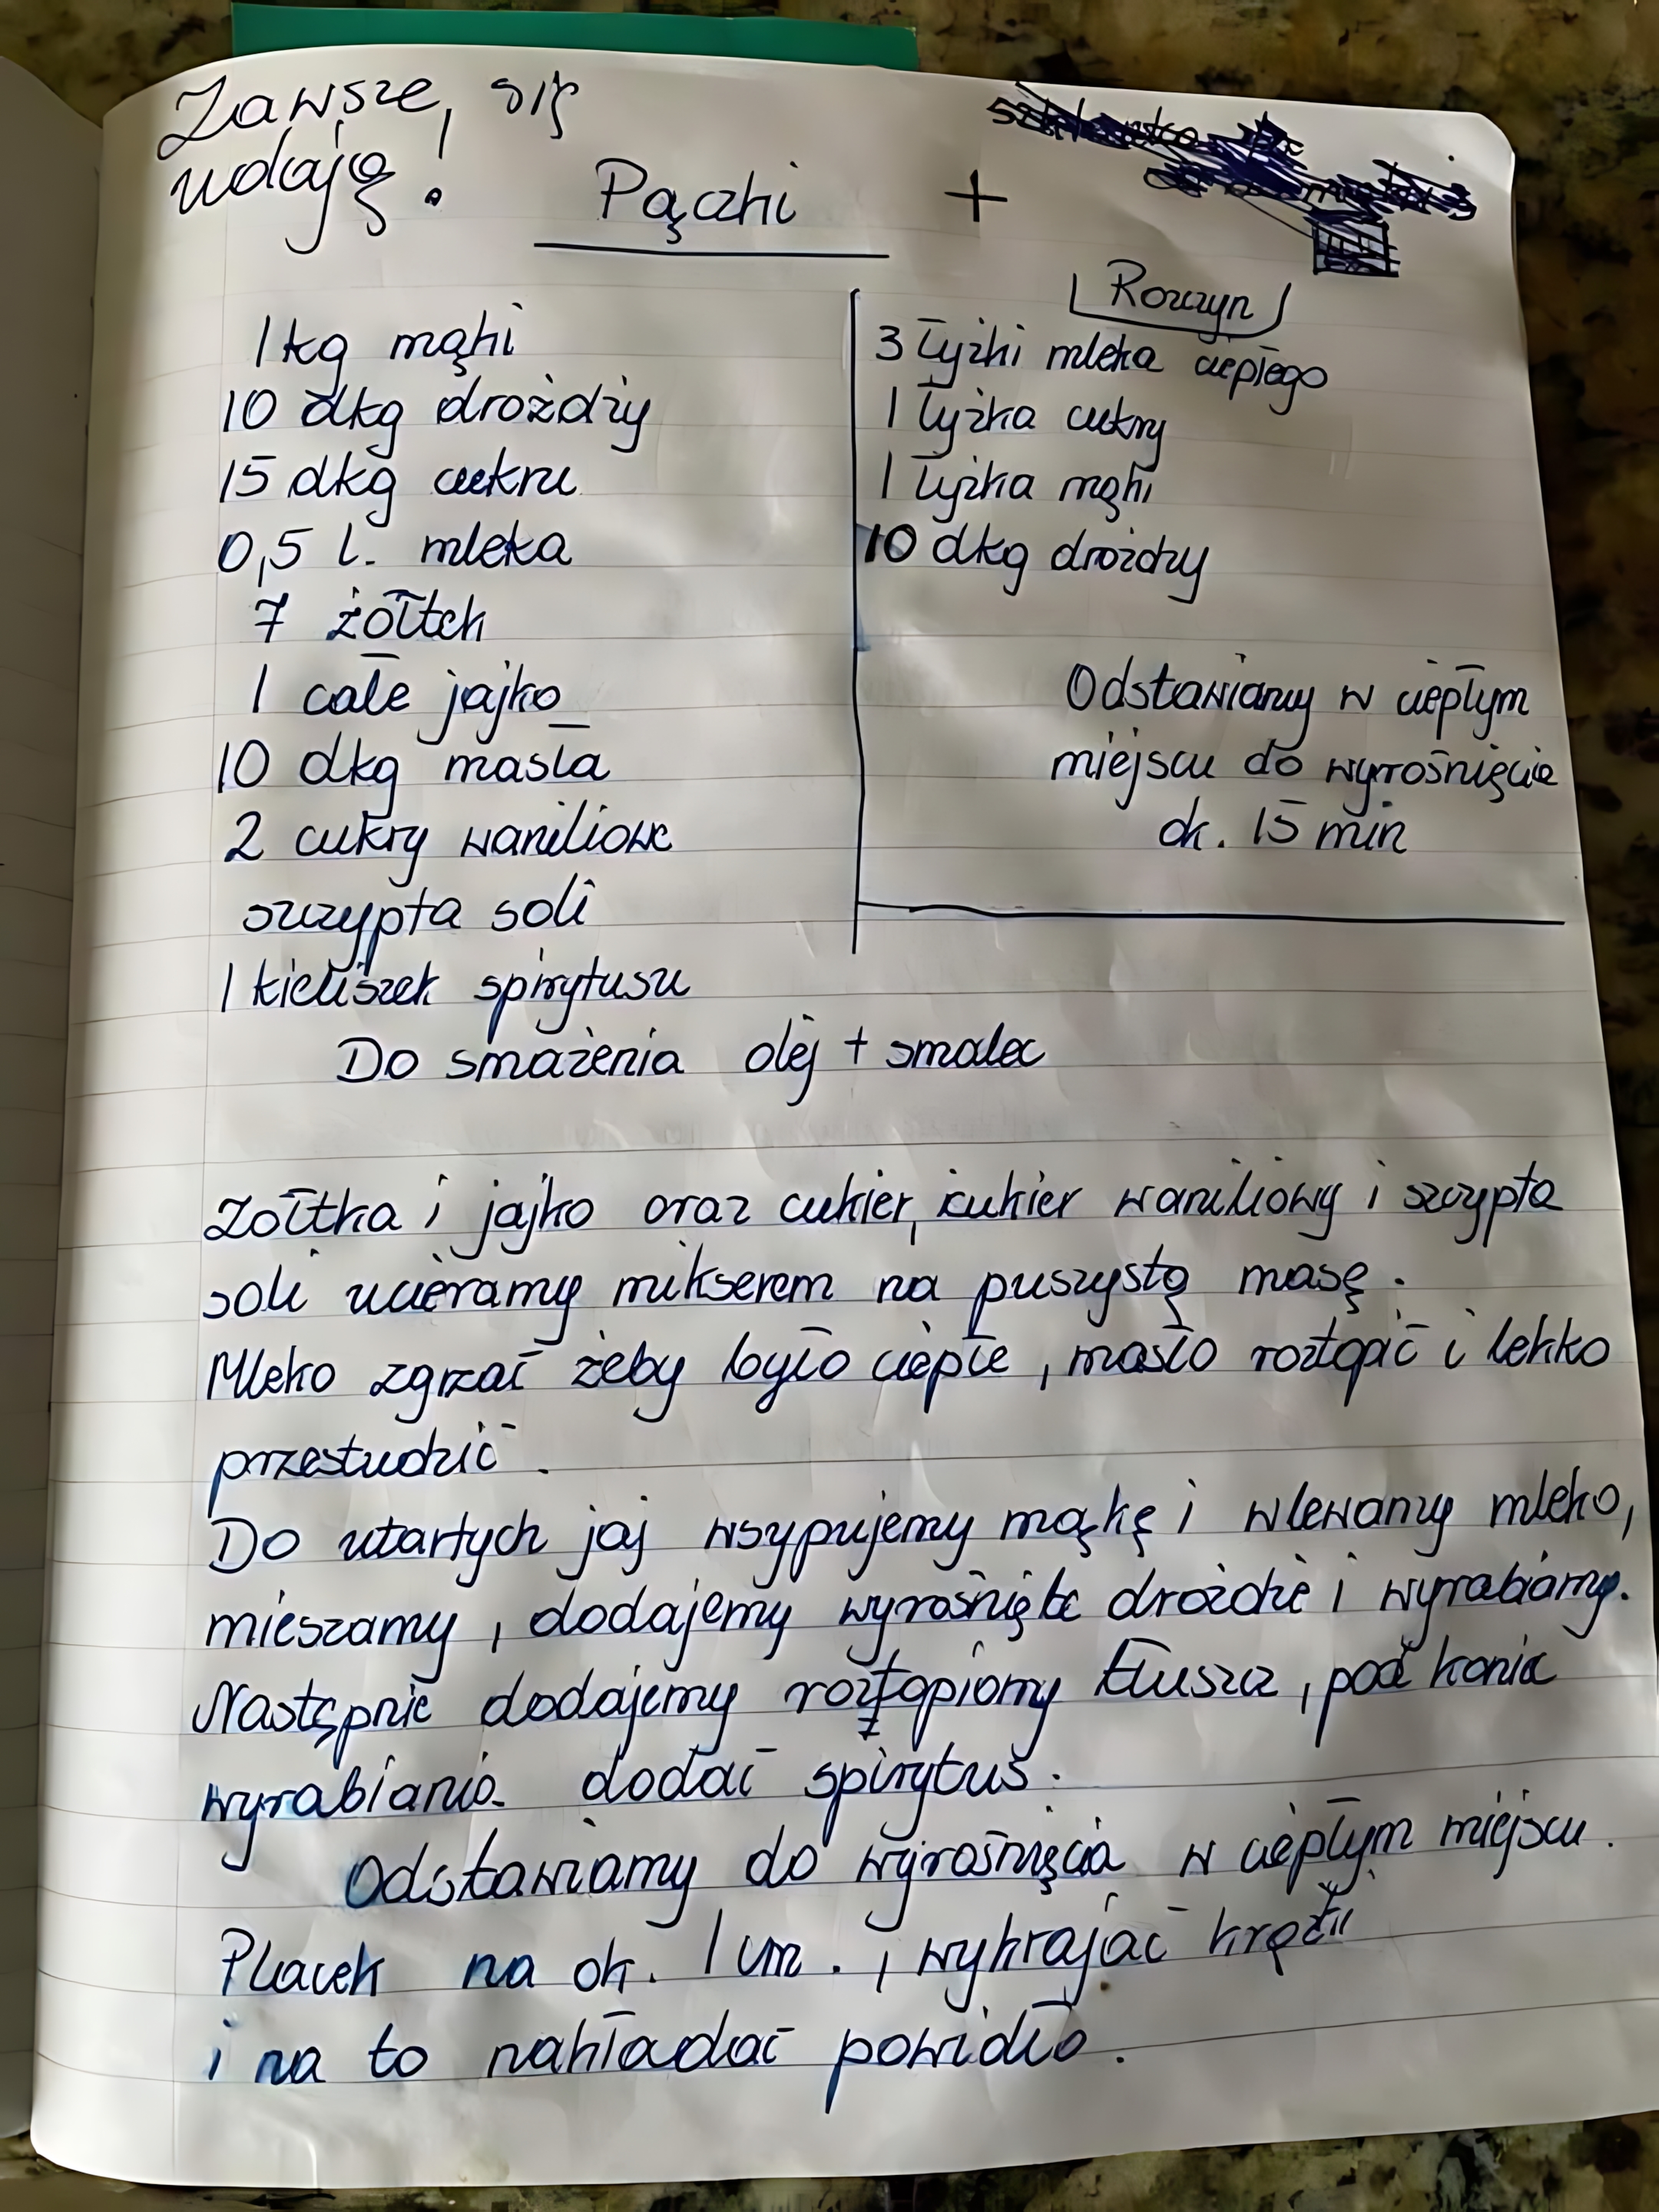 Zawsze się
udają!
Pączki +
1 kg mąki
10 dkg drożdży
15 dkg cukru
0,5 l. mleka
7 żółtek
1 całe jajko
10 dkg masła
2 cukry waniliowe
szczypta soli
1 kieliszek spirytusu
Do smażenia olej + smalec
Rozczyn
3 łyżki mleka ciepłego
1 łyżka cukry
1 łyżka mąki
10 dkg drożdży
Odstawiamy w ciepłym
miejscu do wyrośnięcie
ok. 15 min
Żółtka i jajko oraz cukier, cukier waniliowy i szczypta
soli ucieramy mikserem na puszystą masę.
Mleko zgrzać żeby było ciepłe, masło roztopić i lekko
przestudzić.
Do utartych jaj wsypujemy mąkę i wlewamy mleko,
mieszamy, dodajemy wyrośnięte drożdże i wyrabiamy.
Następnie dodajemy roztopiony tłuszcz, pod koniec
wyrabiania dodać spirytus.
Odstawiamy do wyrośnięcia w ciepłym miejscu.
Placek na ok. 1 cm., wykrajać
i na to nakładać powidło.